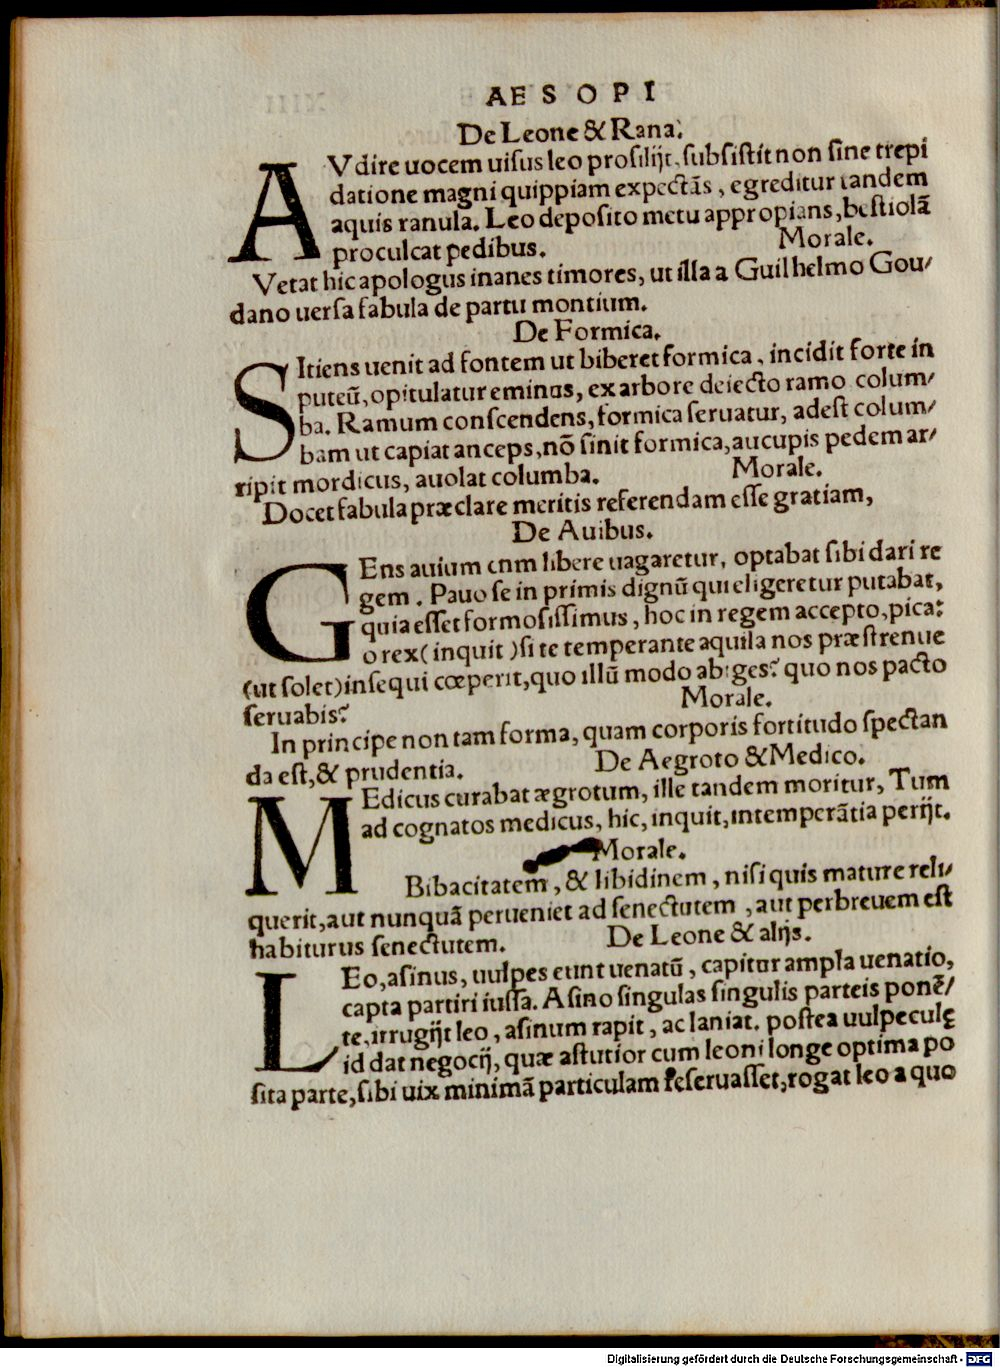 AESOPI
De Leone & Rana.
AVdire uocem uisus leo prosilijt, subsistit non sine trepi
datione magni quippiam expectãs, egreditur tandem
aquis ranula. Leo deposito metu appropians, bestiolã
proculcat pedibus. Morale.
Vetat hic apologus inanes timores, ut illa a Guilhelmo Gou/
dano uersa fabula de partu montium.
De Formica.
SItiens uenit ad fontem ut biberet formica, incidit forte in
puteũ, opitulatur eminus, ex arbore deiecto ramo colum/
ba. Ramum conscendens, formica seruatur, adest colum/
bam ut capiat anceps, nõ sinit formica, aucupis pedem ar/
ripit mordicus, auolat columba. Morale.
Docet fabula præclare meritis referendam esse gratiam,
De Auibus.
GEns auium cnm libere uagaretur, optabat sibi dari re
gem. Pauo se in primis dignũ qui eligeretur putabat,
quia esset formosissimus, hoc in regem accepto, pica:
o rex (inquit) si te temperante aquila nos præstrenue
(ut solet) insequi cœperit, quo illũ modo abiges? quo nos pacto
seruabis? Morale.
In principe non tam forma, quam corporis fortitudo spectan
da est, & prudentia. De Aegroto & Medico.
MEdicus curabat ægrotum, ille tandem moritur, Tum
ad cognatos medicus, hic, inquit, intemperãtia perijt.
Morale.
Bibacitatem, & libidinem, nisi quis mature reli/
querit, aut nunquã perueniet ad senectutem, aut perbreuem est
habiturus senectutem. De Leone & alijs.
LEo, asinus, uulpes eunt uenatũ, capitur ampla uenatio,
capta partiri iussa. Asino singulas singulis parteis ponẽ/
te, irrugijt leo, asinum rapit, ac laniat. postea uulpeculę
id dat negocij, quæ astutior cum leoni longe optima po
sita parte, sibi uix minimã particulam reseruasset, rogat leo a quo
Digitalisierung gefördert durch die Deutsche Forschungsgemeinschaft - DFG